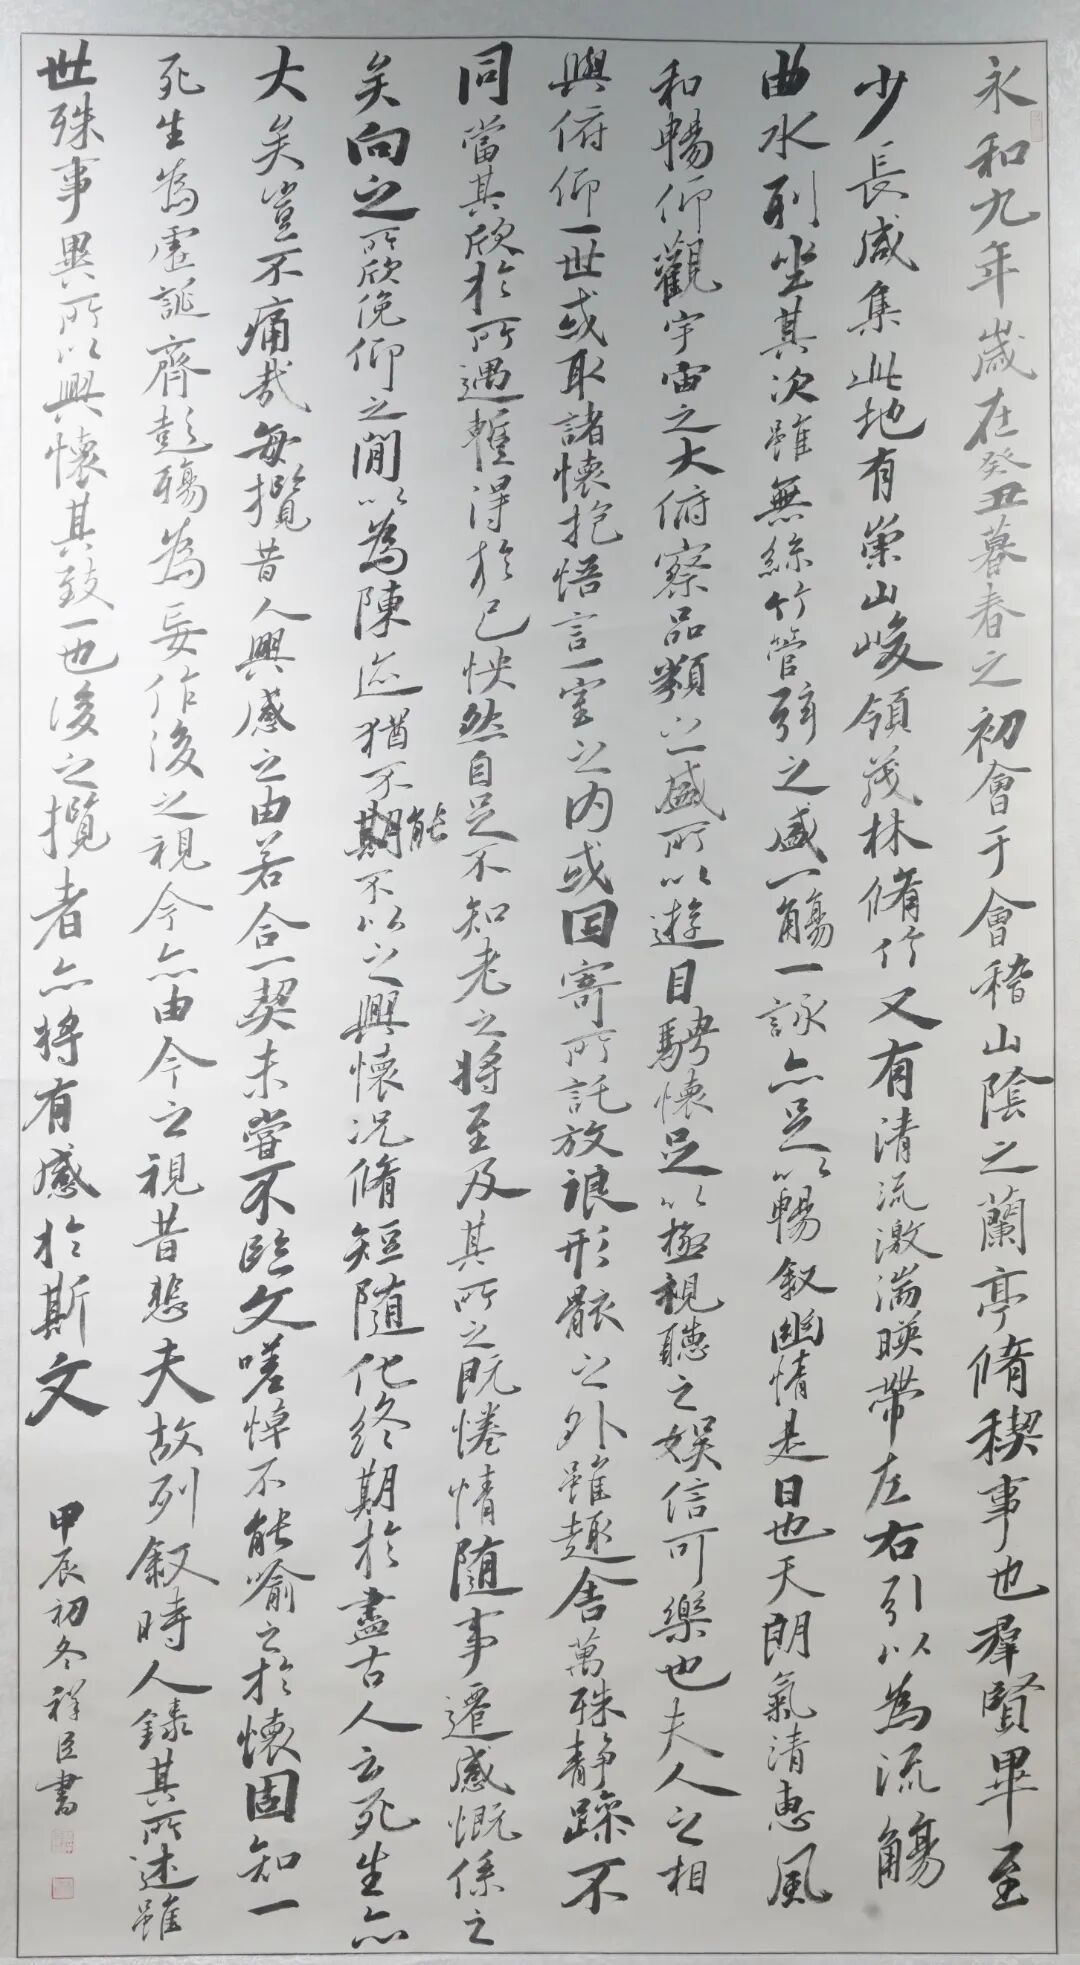 永和九年歲在癸丑暮春之初會于會稽山陰之蘭亭脩稧事也羣賢畢至
少長咸集此地有崇山峻領茂林脩竹又有清流激湍暎帶左右引以為流觴
曲水列坐其次雖無絲竹管弦之盛一觴一詠亦足以暢叙幽情是日也天朗氣清惠風
和暢仰觀宇宙之大俯察品類之盛所以遊目騁懷足以極視聽之娛信可樂也夫人之相
與俯仰一世或取諸懷抱悟言一室之內或因寄所託放浪形骸之外雖趣舍萬殊静躁不
同當其欣於所遇蹔得於己怏然自足不知老之將至及其所之既惓情隨事遷感慨係之
矣向之所欣俛仰之閒以為陳迹猶不期能不以之興懷况脩短隨化終期於盡古人云死生亦
大矣豈不痛哉每攬昔人興感之由若合一契未嘗不臨文嗟悼不能喻之於懷固知一
死生為虛誕齊彭殤為妄作後之視今亦由今之視昔悲夫故列叙時人錄其所述雖
世殊事異所以興懷其致一也後之攬者亦將有感於斯文
甲辰初冬祥臣書